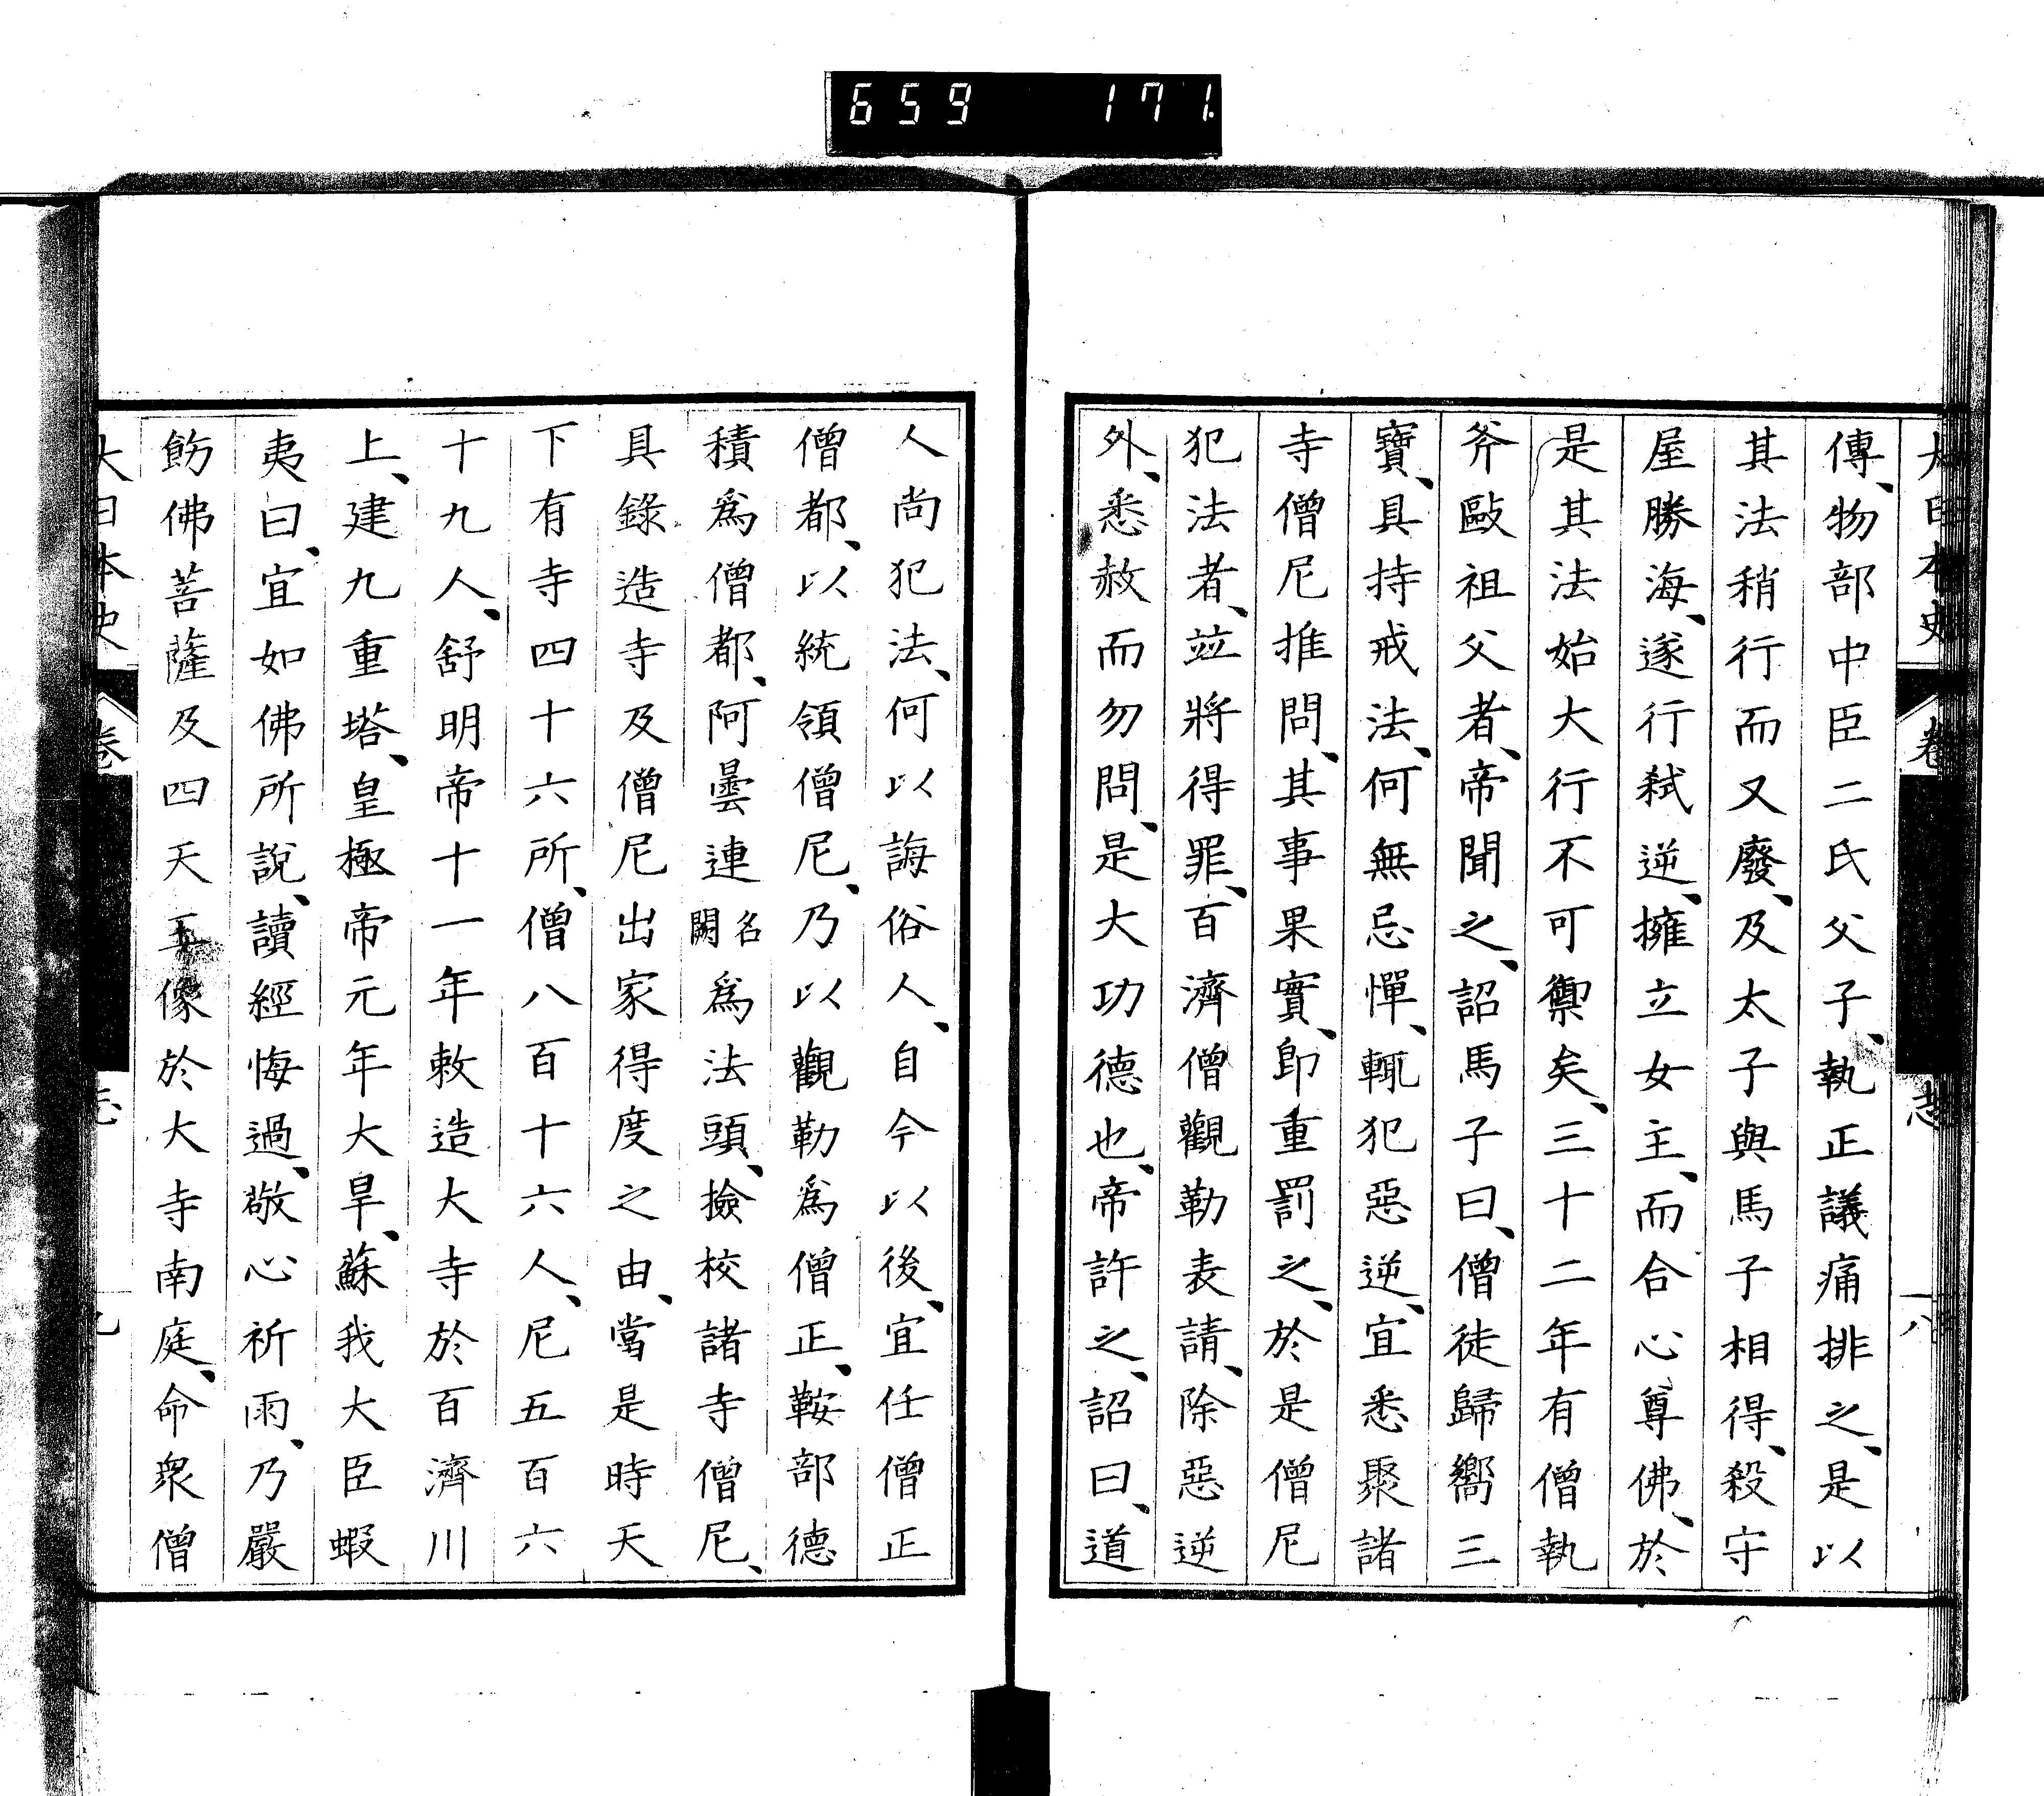 659 171
大日本史 卷 志 一八
傳、物部中臣二氏父子、執正議痛排之、是以
其法稍行而又廢、及太子與馬子相得、殺守
屋勝海、遂行弒逆、擁立女主、而合心尊佛、於
是其法始大行不可禦矣、三十二年有僧執
斧毆祖父者、帝聞之、詔馬子曰、僧徒歸嚮三
寶、具持戒法、何無忌憚、輒犯惡逆、宜悉聚諸
寺僧尼推問、其事果實、卽重罰之、於是僧尼
犯法者、竝將得罪、百濟僧觀勒表請、除惡逆
外、悉赦而勿問、是大功德也、帝許之、詔曰、道
人尚犯法、何以誨俗人、自今以後、宜任僧正
僧都、以統領僧尼、乃以觀勒爲僧正、鞍部德
積爲僧都、阿曇連名闕爲法頭、撿校諸寺僧尼、
具錄造寺及僧尼出家得度之由、當是時天
下有寺四十六所、僧八百十六人、尼五百六
十九人、舒明帝十一年敕造大寺於百濟川
上、建九重塔、皇極帝元年大旱、蘇我大臣蝦
夷曰、宜如佛所說、讀經悔過、敬心祈雨、乃嚴
飭佛菩薩及四天王像於大寺南庭、命衆僧
大日本史 卷 志